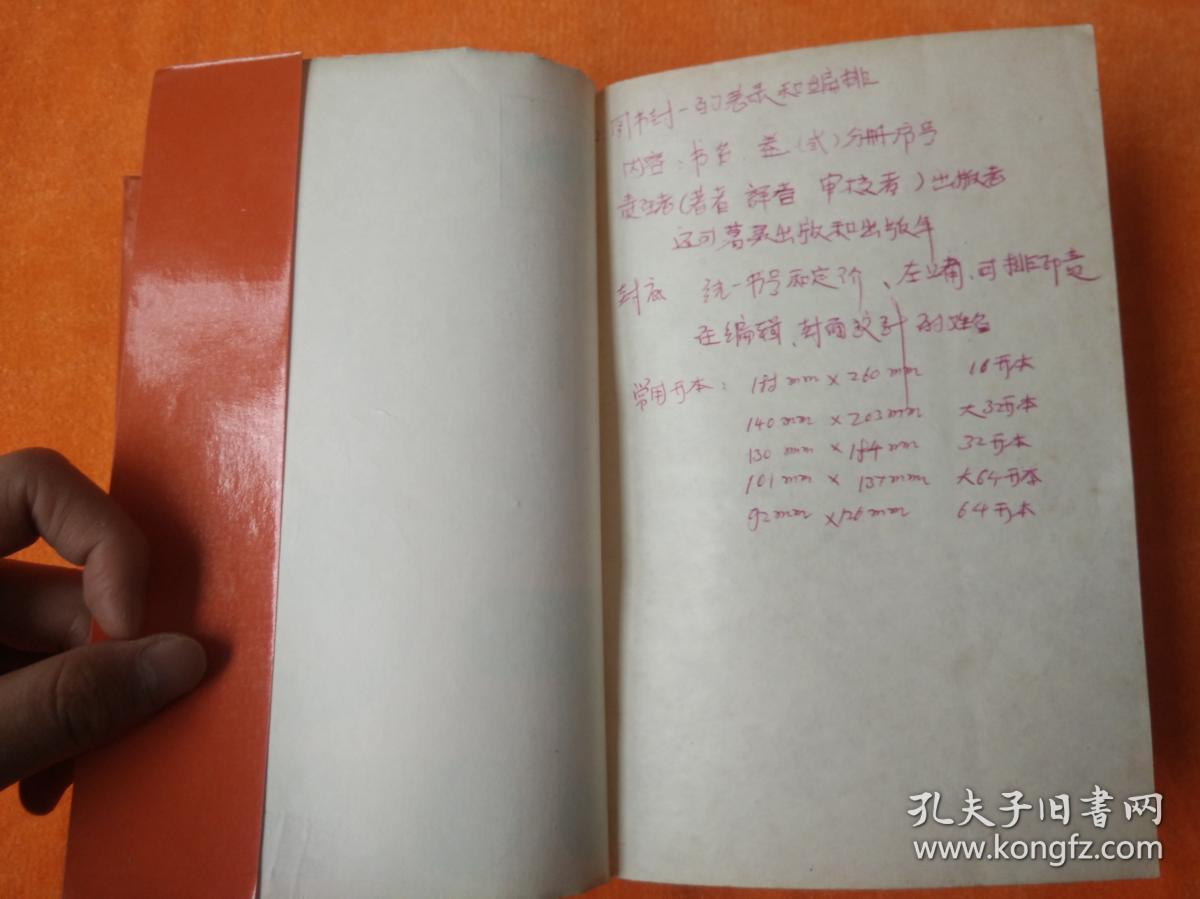 图书封一的著录和编排
内容：书名、卷（式）分册序号
责任者（著者 译者 审校者）出版者
还可著录出版和出版年
封底 统一书号和定价、左上角，可排印责
任编辑、封面设计的姓名
常用开本： mm × 260 mm 16开本
140 mm × 203 mm 大32开本
130 mm × 184 mm 32开本
101 mm × 137 mm 大64开本
92 mm × 126 mm 64开本
孔夫子旧书网
www.kongfz.com